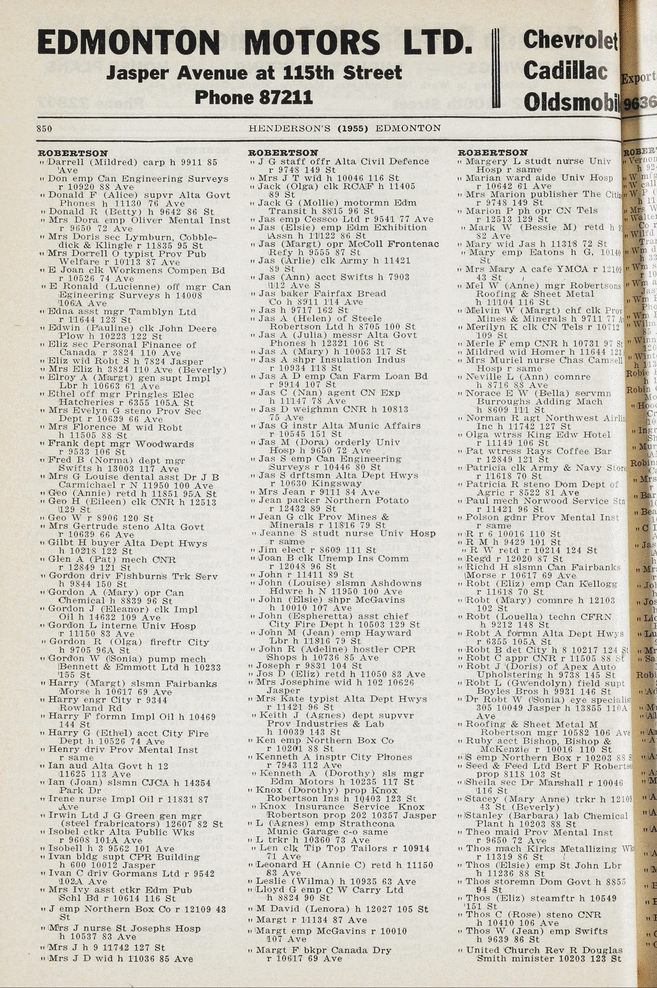 EDMONTON MOTORS LTD.
Jasper Avenue at 115th Street
Phone 87211
Chevrolet
Cadillac
Oldsmobi
850
HENDERSON'S (1955) EDMONTON
ROBERTSON
" Darrell (Mildred) carp h 9911 85
Ave
" Don emp Can Engineering Surveys
r 10920 88 Ave
" Donald F (Alice) supvr Alta Govt
Phones h 11130 76 Ave
" Donald R (Betty) h 9642 86 St
" Mrs Dora emp Oliver Mental Inst
r 9650 72 Ave
" Mrs Doris sec Lymburn, Cobble-
dick & Kingle r 11835 95 St
" Mrs Dorrell O typist Prov Pub
Welfare r 10113 87 Ave
" E Joan clk Workmens Compen Bd
r 10526 74 Ave
" E Ronald (Lucienne) off mgr Can
Engineering Surveys h 14008
106A Ave
" Edna asst mgr Tamblyn Ltd
r 11644 123 St
" Edwin (Pauline) clk John Deere
Plow h 10323 122 St
" Eliz sec Personal Finance of
Canada r 3824 110 Ave
" Eliz wid Robt S h 7824 Jasper
" Mrs Eliz h 3824 110 Ave (Beverly)
" Elroy A (Margt) gen supt Impl
Lbr h 10663 61 Ave
" Ethel off mgr Pringles Elec
Hatcheries r 6355 105A St
" Mrs Evelyn G steno Prov Sec
Dept r 10639 66 Ave
" Mrs Florence M wid Robt
h 11505 88 St
" Frank dept mgr Woodwards
r 9533 106 St
" Fred B (Norma) dept mgr
Swifts h 13003 117 Ave
" Mrs G Louise dental asst Dr J B
Carmichael r N 11950 100 Ave
" Geo (Annie) retd h 11851 95A St
" Geo H (Eileen) clk CNR h 12513
129 St
" Geo W r 8906 120 St
" Mrs Gertrude steno Alta Govt
r 10639 66 Ave
" Gilbt H buyer Alta Dept Hwys
h 10218 122 St
" Glen A (Pat) mech CNR
r 12849 121 St
" Gordon driv Fishburns Trk Serv
h 9844 150 St
" Gordon A (Mary) opr Can
Chemical h 8839 96 St
" Gordon J (Eleanor) clk Impl
Oil h 14632 109 Ave
" Gordon L interne Univ Hosp
r 11150 83 Ave
" Gordon R (Olga) fireftr City
h 9705 96A St
" Gordon W (Sonia) pump mech
Bennett & Emmott Ltd h 10233
155 St
" Harry (Margt) slsmn Fairbanks
Morse h 10617 69 Ave
" Harry engr City r 9344
Rowland Rd
" Harry F formn Impl Oil h 10469
144 St
" Harry G (Ethel) acct City Fire
Dept h 10526 74 Ave
" Henry driv Prov Mental Inst
r same
" Ian aud Alta Govt h 12
11625 113 Ave
" Ian (Joan) slsmn CJCA h 14354
Park Dr
" Irene nurse Impl Oil r 11831 87
Ave
" Irwin Ltd J G Green gen mgr
(steel fabricators) 12607 82 St
" Isobel ctkr Alta Public Wks
r 9608 101A Ave
" Isobell h 3 9562 101 Ave
" Ivan bldg supt CPR Building
h 600 10012 Jasper
" Ivan C driv Gormans Ltd r 9542
102A Ave
" Mrs Ivy asst ctkr Edm Pub
Schl Bd r 10614 116 St
" J emp Northern Box Co r 12109 43
St
" Mrs J nurse St Josephs Hosp
h 10537 83 Ave
" Mrs J h 9 11742 127 St
" Mrs J D wid h 11036 85 Ave
ROBERTSON
" J G staff offr Alta Civil Defence
r 9748 149 St
" Mrs J T wid h 10046 116 St
" Jack (Olga) clk RCAF h 11405
89 St
" Jack G (Mollie) motormn Edm
Transit h 8815 96 St
" Jas emp Cessco Ltd r 9541 77 Ave
" Jas (Elsie) emp Edm Exhibition
Assn h 11122 86 St
" Jas (Margt) opr McColl Frontenac
Refy h 9555 87 St
" Jas (Arlie) clk Army h 11421
89 St
" Jas (Ann) acct Swifts h 7903
112 Ave S
" Jas baker Fairfax Bread
Co h 8911 114 Ave
" Jas h 9717 162 St
" Jas A (Helen) of Steele
Robertson Ltd h 8705 100 St
" Jas A (Julia) messr Alta Govt
Phones h 12321 106 St
" Jas A (Mary) h 10053 117 St
" Jas A shpr Insulation Indus
r 10934 118 St
" Jas A D emp Can Farm Loan Bd
r 9914 107 St
" Jas C (Nan) agent CN Exp
h 11147 78 Ave
" Jas D weighmn CNR h 10813
75 Ave
" Jas G instr Alta Munic Affairs
r 10545 151 St
" Jas M (Dora) orderly Univ
Hosp h 9650 72 Ave
" Jas S emp Can Engineering
Surveys r 10446 80 St
" Jas S drftsmn Alta Dept Hwys
r 10630 Kingsway
" Mrs Jean r 9111 84 Ave
" Jean packer Northern Potato
r 12432 89 St
" Jean G clk Prov Mines &
Minerals r 11816 79 St
" Jeanne S studt nurse Univ Hosp
r same
" Jim elect r 8609 111 St
" Joan B clk Unemp Ins Comm
r 12048 96 St
" John r 11411 89 St
" John (Louise) slsmn Ashdowns
Hdwre h N 11950 100 Ave
" John (Elsie) shpr McGavins
h 10010 107 Ave
" John (Espheretta) asst chief
City Fire Dept h 10503 129 St
" John M (Jean) emp Hayward
Lbr h 11816 79 St
" John R (Adeline) hostler CPR
Shops h 10736 85 Ave
" Joseph r 9831 104 St
" Jos D (Eliz) retd h 11050 83 Ave
" Mrs Josephine wid h 102 10626
Jasper
" Mrs Kate typist Alta Dept Hwys
r 11421 96 St
" Keith J (Agnes) dept supvvr
Prov Industries & Lab
h 10039 143 St
" Ken emp Northern Box Co
r 10201 88 St
" Kenneth A insptr City Phones
r 7943 112 Ave
" Kenneth A (Dorothy) sls mgr
Edm Motors h 10235 117 St
" Knox (Dorothy) prop Knox
Robertson Ins h 10403 123 St
" Knox Insurance Service Knox
Robertson prop 202 10357 Jasper
" L (Agnes) emp Strathcona
Munic Garage c-o same
" L trkr h 10360 73 Ave
" Len clk Tip Top Tailors r 10914
71 Ave
" Leonard H (Annie C) retd h 11150
83 Ave
" Leslie (Wilma) h 10935 63 Ave
" Lloyd G emp C W Carry Ltd
h 8824 90 St
" M David (Lenora) h 12027 105 St
" Margt r 11134 87 Ave
" Margt emp McGavins r 10010
107 Ave
" Margt F bkpr Canada Dry
r 10617 69 Ave
ROBERTSON
" Margery L studt nurse Univ
Hosp r same
" Marian ward aide Univ Hosp
r 10642 61 Ave
" Mrs Marion publisher The
r 9748 149 St
" Marion P ph opr CN Tels
r 12513 129 St
" Mark W (Bessie M) retd h
82 Ave
" Mary wid Jas h 11318 72 St
" Mary emp Eatons h G,
St
" Mrs Mary A cafe YMCA r
43 St
" Mel W (Anne) mgr Robertsons
Roofing & Sheet Metal
h 11104 116 St
" Melvin W (Margt) chf clk Prov
Mines & Minerals h 9711 77
" Merilyn K clk CN Tels r 10712
109 St
" Merle F emp CNR h 10731 97 St
" Mildred wid Homer h 11644
" Mrs Muriel nurse Chas Camsell
Hosp r same
" Neville L (Ann) comnre
h 8716 88 Ave
" Norace E W (Bella) servmn
Burroughs Adding Mach
h 8609 111 St
" Norman R agt Northwest
Inc h 11742 127 St
" Olga wtrss King Edw Hotel
r 11149 106 St
" Pat wtress Rays Coffee Bar
r 12849 121 St
" Patricia clk Army & Navy
r 11618 70 St
" Patricia R steno Dom Dept of
Agric r 8522 81 Ave
" Paul mech Norwood Service
r 11421 96 St
" Polson gdnr Prov Mental Inst
r same
" R r 6 10016 110 St
" R M h 9429 101 St
" R W retd r 10214 124 St
" Regd r 12020 87 St
" Richd H slsmn Can Fairbanks
Morse r 10617 69 Ave
" Robt (Eliz) emp Can Kellogg
r 11618 70 St
" Robt (Mary) comnre h 12103
102 St
" Robt (Louella) techn CFRN
h 9212 148 St
" Robt A formn Alta Dept Hwys
r 6355 105A St
" Robt B det City h 8 10217 124
" Robt C appr CNR r 11505 88
" Robt J (Doris) of Apex Auto
Upholstering h 9738 145 St
" Robt L (Gwendolyn) field supt
Boyles Bros h 9931 146 St
" Dr Robt W (Sonia) eye
305 10049 Jasper h 13855 110A
Ave
" Roofing & Sheet Metal M
Robertson mgr 10582 106
" Ruby acct Bishop, Bishop &
McKenzie r 10016 110 St
" S emp Northern Box r 10203 88
" Seed & Feed Ltd Bert F
prop 8118 103 St
" Sheila sec Dr Marshall r 10046
116 St
" Stacey (Mary Anne) trkr h
43 St (Beverly)
" Stanley (Barbara) lab Chemical
Plant h 10203 88 St
" Theo maid Prov Mental Inst
r 9650 72 Ave
" Thos mach Kirks Metallizing
r 11319 86 St
" Thos (Elsie) emp St John Lbr
h 11236 88 St
" Thos storemn Dom Govt h 8855
94 St
" Thos (Eliz) steamftr h 10549
151 St
" Thos C (Rose) steno CNR
h 10410 106 Ave
" Thos W (Jean) emp Swifts
h 9639 86 St
" United Church Rev R Douglas
Smith minister 10203 123 St
Export
9636